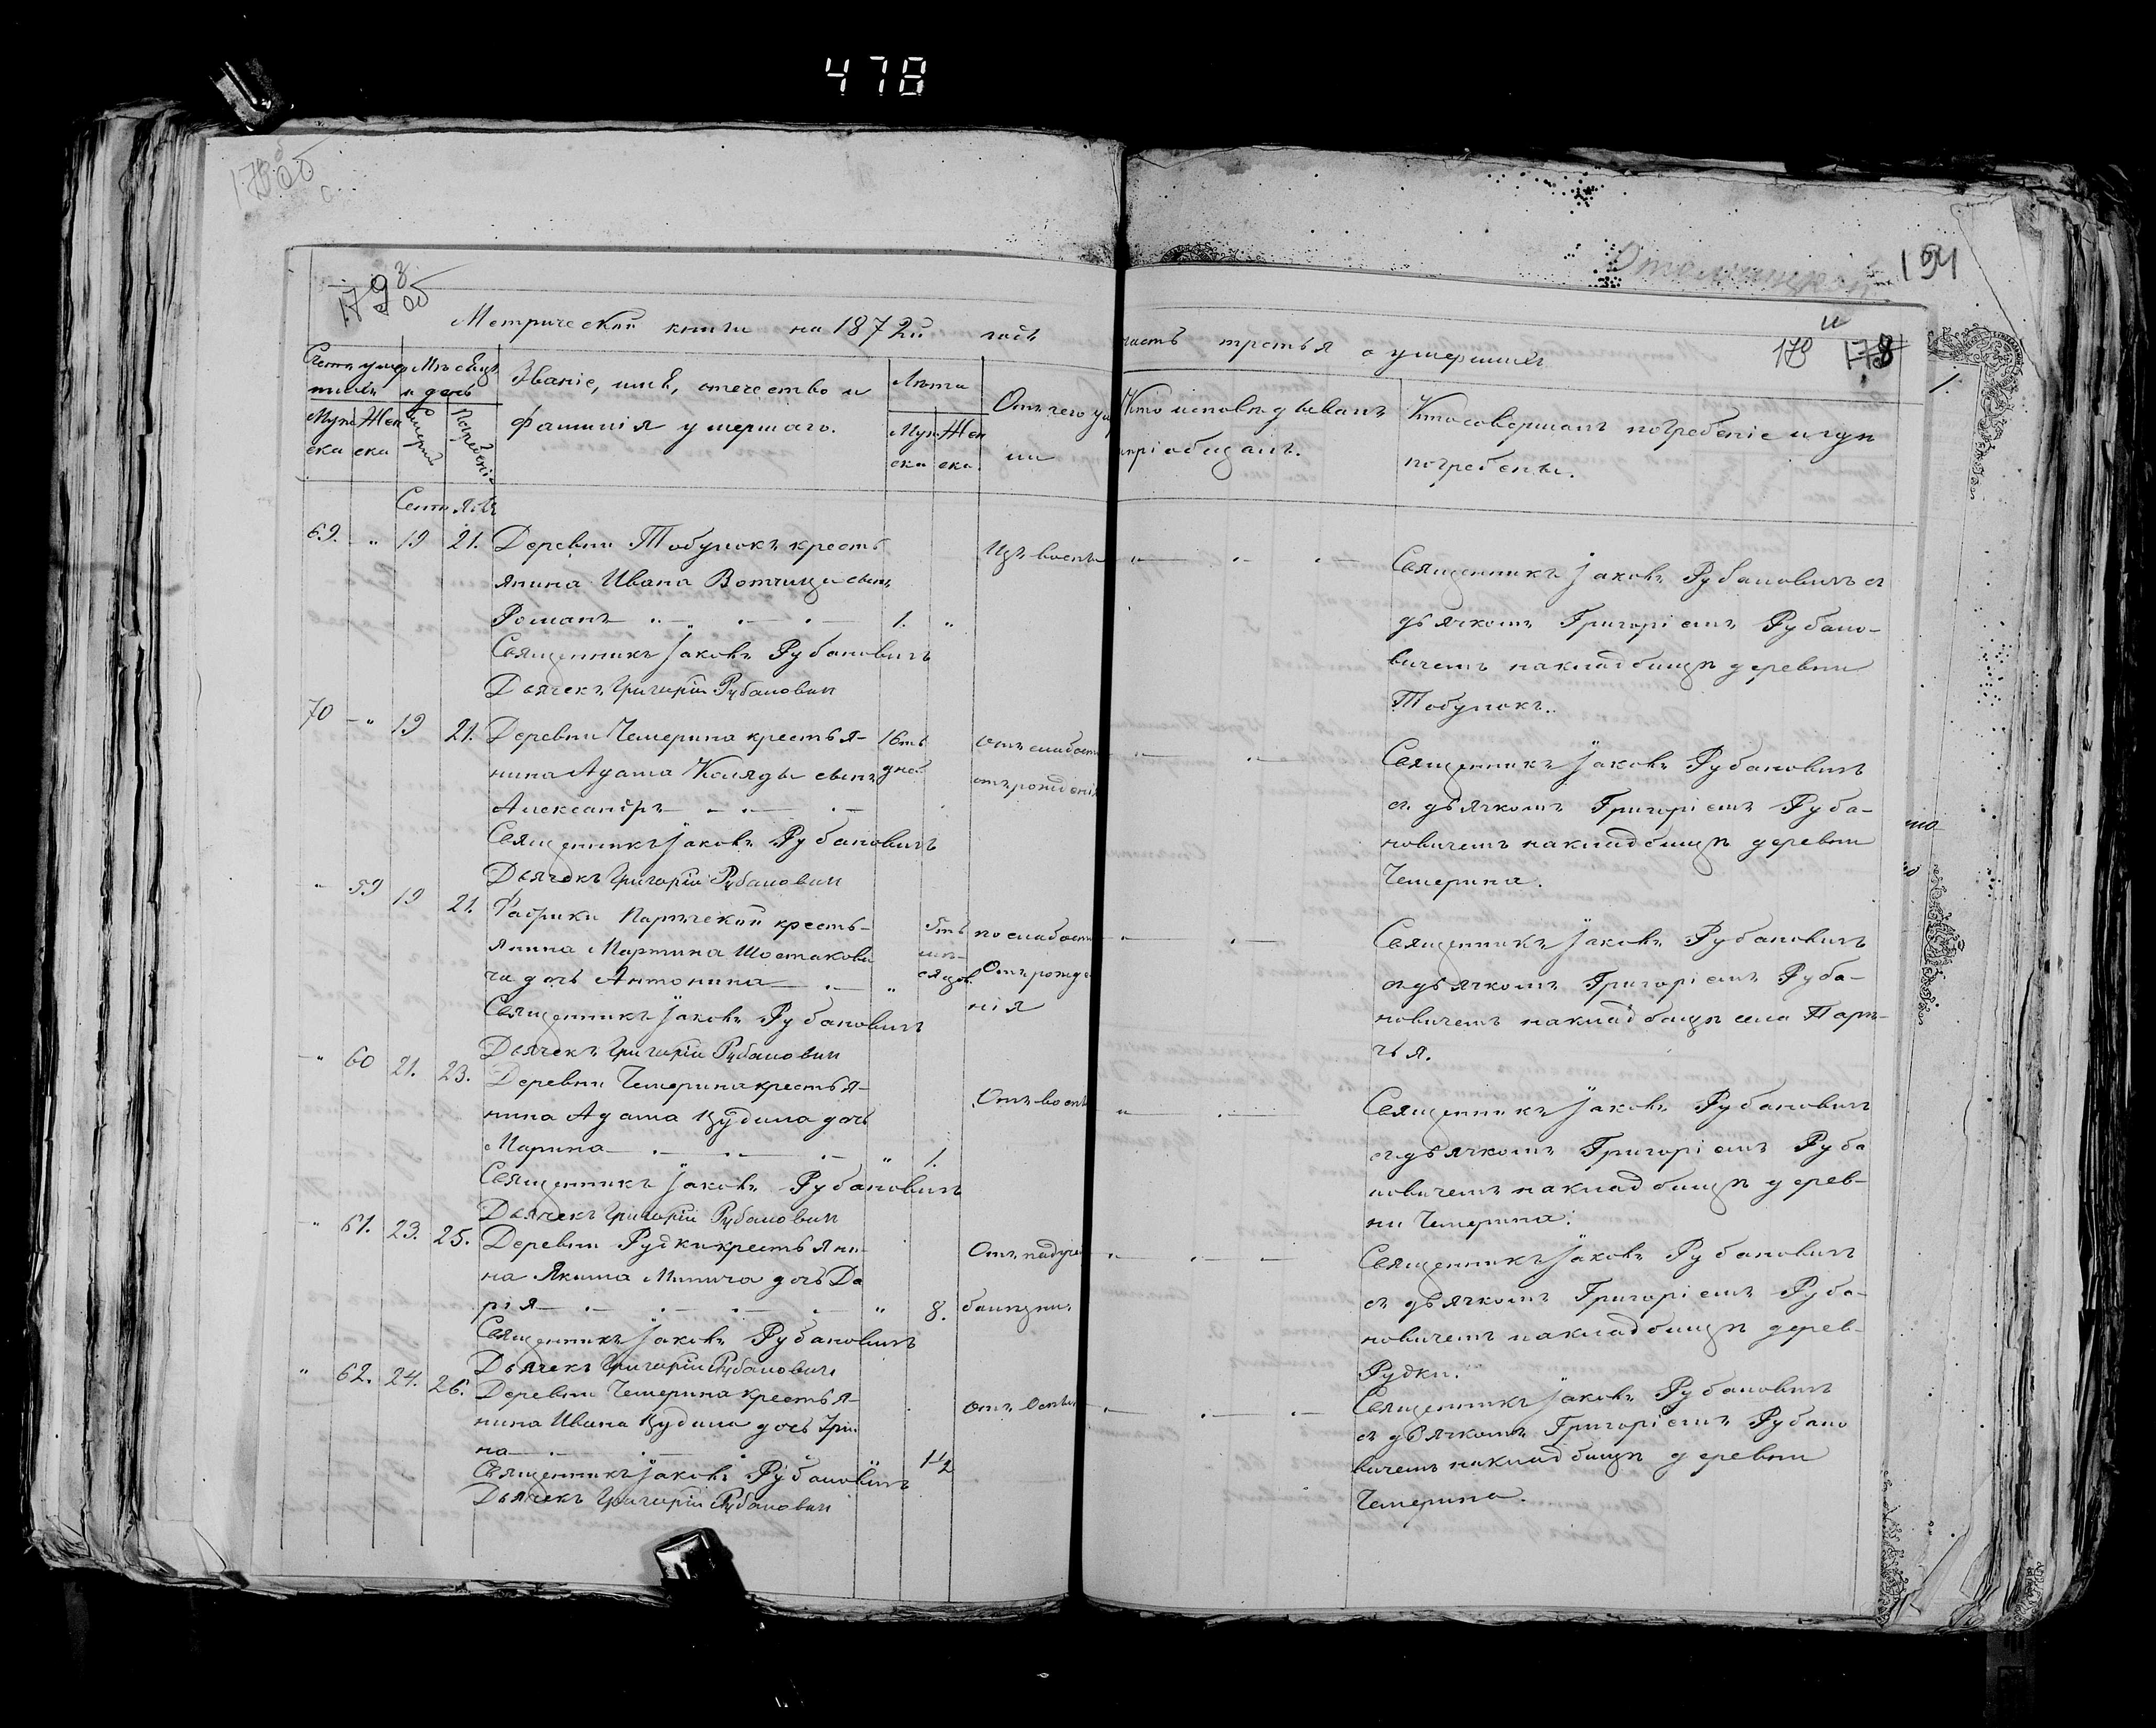 478
194
178
Метрической книги на 1872й годъ
часть третья о умершихъ
Счетъ умер Мѣсяцъ
шихъ и день
Муж Жен
ска ска
Умерш
Погребені
Званіе, имя, отечество и
фамилія умершаго.
Лѣта
Муж Жен
ска ска
Отъ чего ум
ли
Кто исповѣдывалъ
пріобщалъ.
Кто совершалъ погребеніе и гдѣ
погребены.
Сентябрь
69. " 19 21. Деревни Тобулокъ кресть
янина Ивана Вотчица сынъ
Романъ 1. "
Изъ воспы
Священникъ Іаковъ Рубановичъ
Дьячекъ Григорій Рубанович
Священникъ Іаковъ Рубановичъ съ
дьячкомъ Григоріемъ Рубано-
вичемъ на кладбищѣ деревни
Тобулокъ.
70 " 19 21. Деревни Чемерина крестья-
нина Адама Коляды сынъ
Александръ
16ть
дно
отъ слабост
отъ рожденія
Священникъ Іаковъ Рубановичъ
Дьячекъ Григорій Рубанович
Священникъ Іаковъ Рубановичъ
съ дьячкомъ Григоріемъ Руба-
новичемъ на кладбищѣ деревни
Чемерина.
" 59 19 21. Фабрики Паричской кресть-
янина Мартина Шостакови
ча дочь Антонина "
5ть
мѣ-
сяцов
по слабости
Отъ рожде
нія
Священникъ Іаковъ Рубановичъ
Дьячекъ Григорій Рубанович
Священникъ Іаковъ Рубановичъ
съ дьячкомъ Григоріемъ Руба-
новичемъ на кладбищѣ села Пари-
чья.
" 60 21. 23. Деревни Чемерина крестья-
нина Адама Кудина дочь
Марина " 1.
Отъ воспы
Священникъ Іаковъ Рубановичъ
Дьячекъ Григорій Рубанович
Священникъ Іаковъ Рубановичъ
съ дьячкомъ Григоріемъ Руба
новичемъ на кладбищѣ дерев-
ни Чемерина.
" 61. 23. 25. Деревни Рудки крестьяни-
на Якима Минича дочь Да
рія " 8.
Отъ падуче
болѣзни
Священникъ Іаковъ Рубановичъ
Дьячекъ Григорій Рубановичъ
Священникъ Іаковъ Рубановичъ
съ дьячкомъ Григоріемъ Руба-
новичемъ на кладбищѣ дерев-
Рудки.
" 62. 24. 26. Деревни Чемерина крестья-
нина Ивана Кудина дочь Іри
на 1½
отъ воспы
Священникъ Іаковъ Рубановичъ
Дьячекъ Григорій Рубанович
Священникъ Іаковъ Рубановичъ
съ дьячкомъ Григоріемъ Рубано
вичемъ на кладбищѣ деревни
Чемерина.